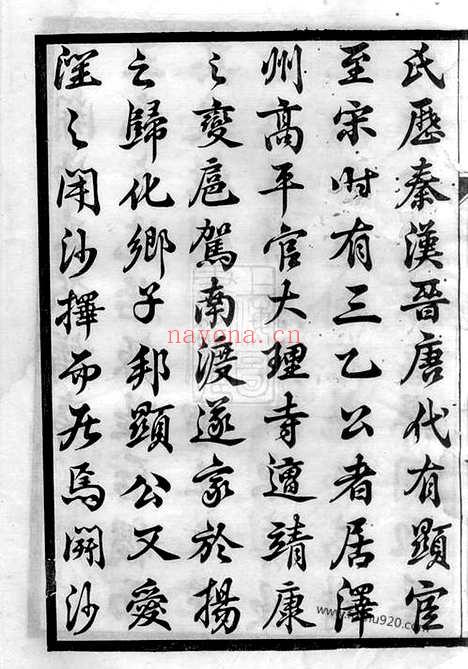 氏歷秦漢晉唐代有顯宦
至宋时有三乙公者居澤
州高平官大理寺遭靖康
之變扈駕南渡遂家於揚
之歸化鄉子邦顯公又愛
之開沙擇而居焉開沙
nayona.cn